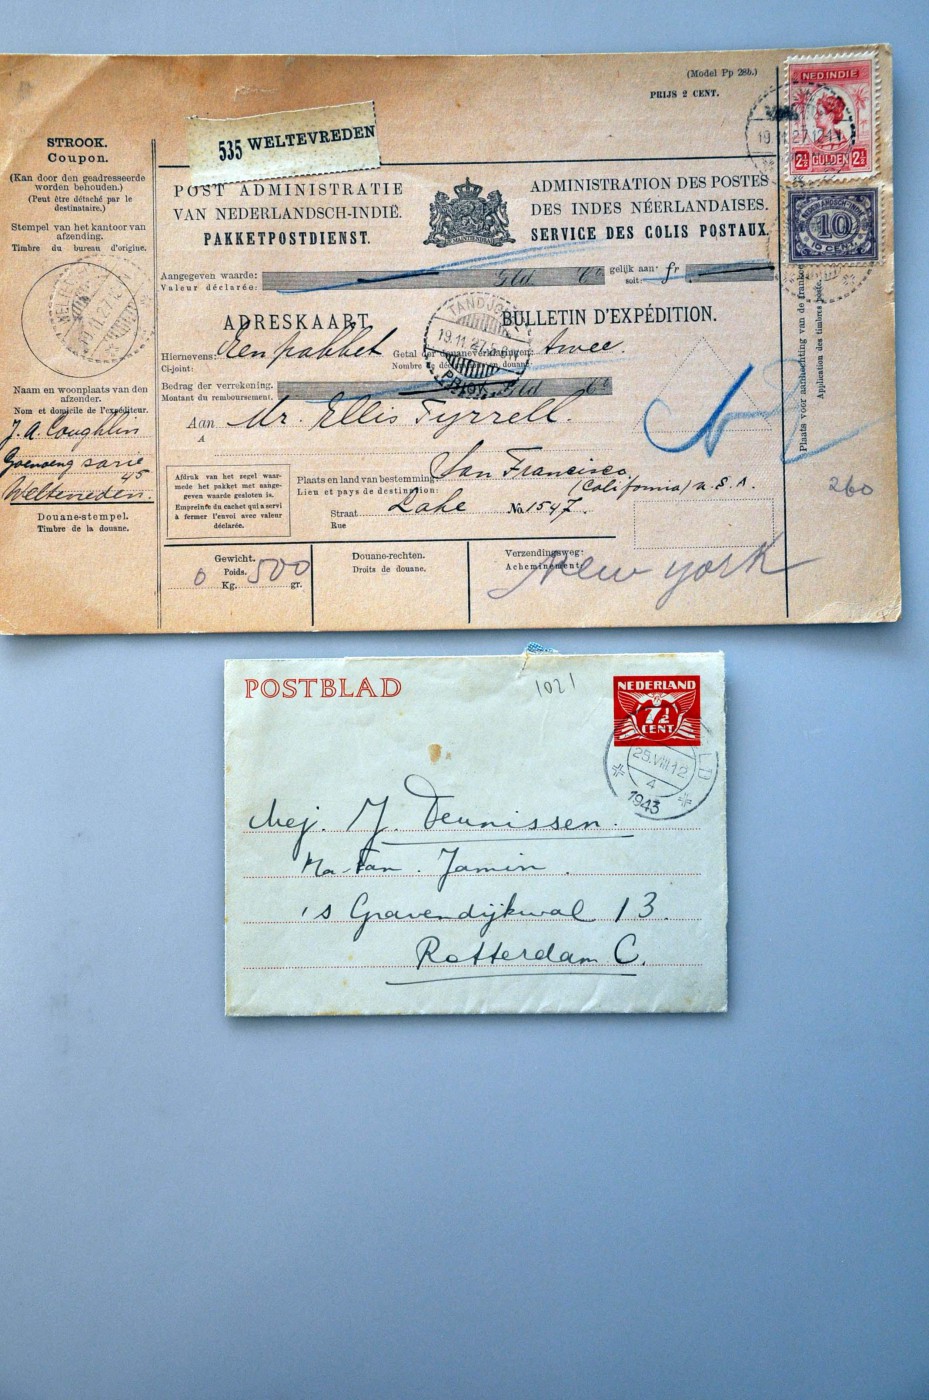 (Model Pp 28b.)
PRIJS 2 CENT.
NED INDIE
2½ GULDEN 2½
NEDERLANDSCH-INDIË
10
10 CENT
19.11.27.12
535 WELTEVREDEN
STROOK.
Coupon.
(Kan door den geadresseerde
worden behouden.)
(Peut être détaché par le
destinataire.)
Stempel van het kantoor van
afzending.
Timbre du bureau d'origine.
Naam en woonplaats van den
afzender.
Nom et domicile de l'expéditeur.
J. A. Coughlin
Goenoeng sarie
45
Weltevreden.
Douane-stempel.
Timbre de la douane.
POST ADMINISTRATIE
VAN NEDERLANDSCH-INDIË.
PAKKETPOSTDIENST.
ADMINISTRATION DES POSTES
DES INDES NÉERLANDAISES.
SERVICE DES COLIS POSTAUX.
Aangegeven waarde:
Valeur déclarée:
Gld Cs
gelijk aan:
soit:
fr
ADRESKAART
BULLETIN D'EXPÉDITION.
TANDJONG
19.11.27.5
PRIOK
Hiernevens:
Ci-joint:
Een pakket
Getal der douaneverklaringen:
Nombre de déclarations en douane:
twee.
Bedrag der verrekening.
Montant du remboursement.
Gld Cs
Aan
A
Mr. Ellis Tyrrell.
Afdruk van het zegel waar-
mede het pakket met aange-
geven waarde gesloten is.
Empreinte du cachet qui a servi
à fermer l'envoi avec valeur
déclarée.
Plaats en land van bestemming:
Lieu et pays de destination:
San Francisco
(California) U.S.A.
Straat
Rue
Lake No 1547.
Gewicht.
Poids.
0 Kg. 500 gr.
Douane-rechten.
Droits de douane.
Verzendingsweg:
Acheminement:
New York
260
Plaats voor aanhechting van de
Application des timbres poste.
POSTBLAD
1021
NEDERLAND
7½
CENT
25.VIII.12
4
1943
Mej. J. Deunissen.
Jamin.
's Gravendijkwal 13.
Rotterdam C.